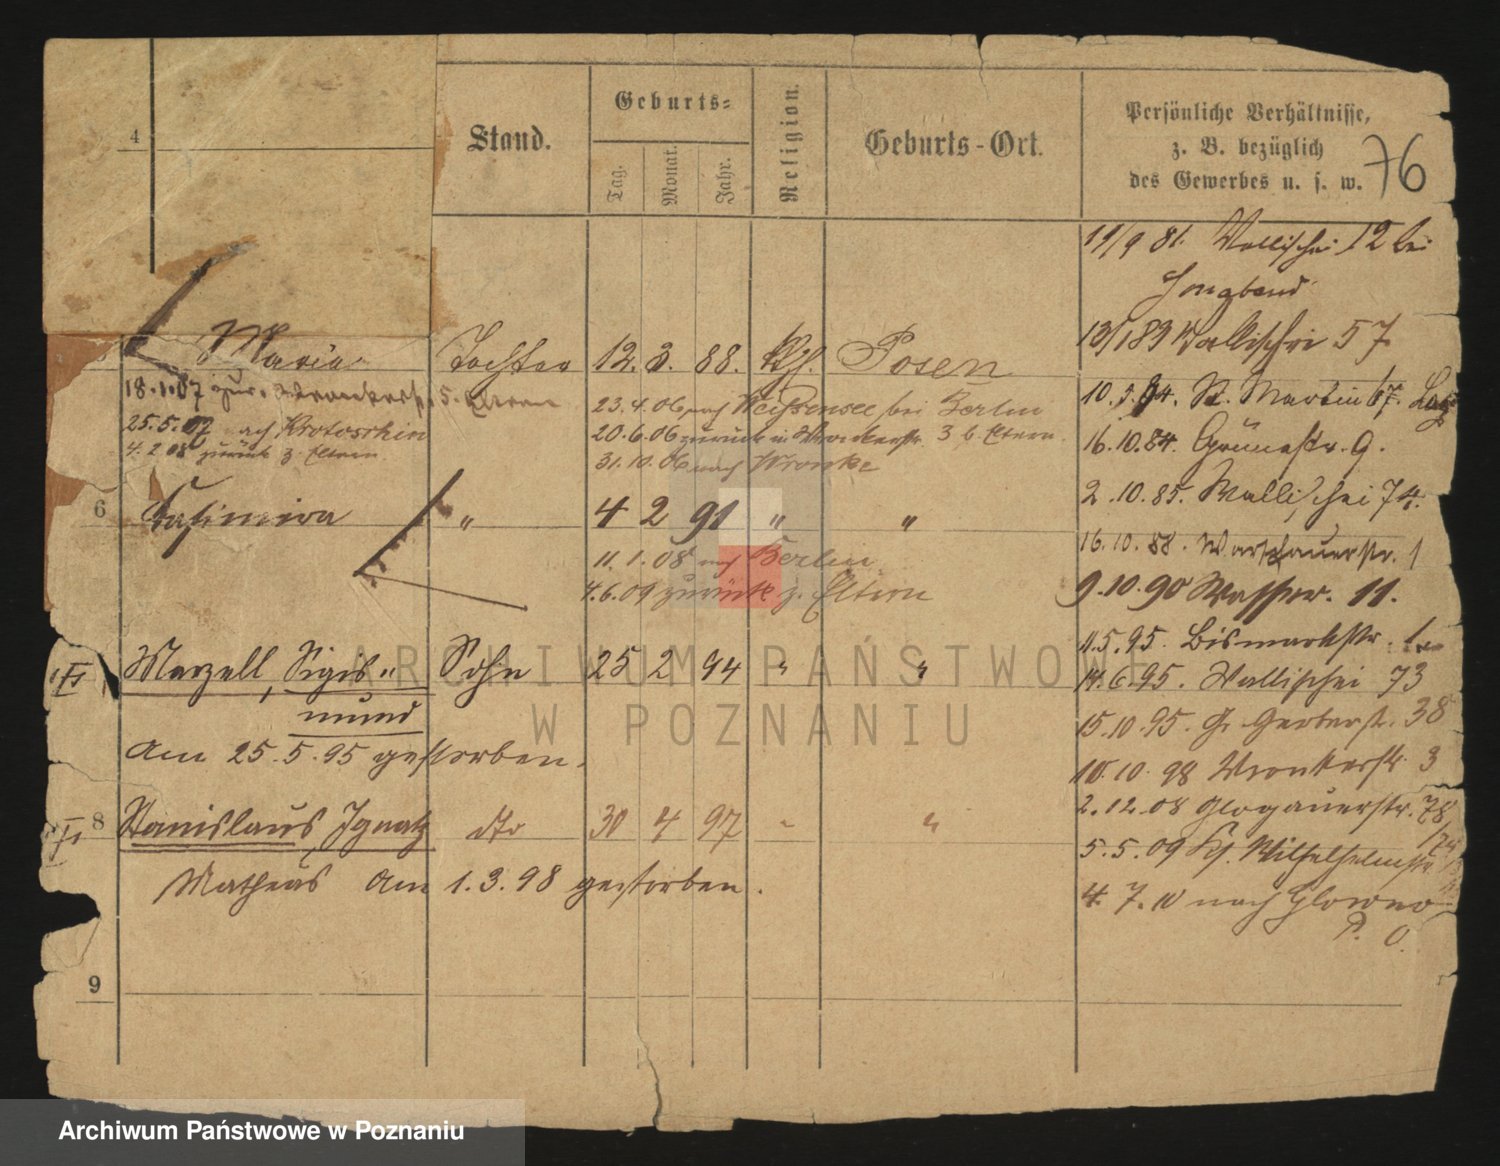 4
Stand.
Geburts-
Tag.
Monat.
Jahr.
Religion.
Geburts-Ort.
Persönliche Verhältnisse,
z. B. bezüglich
des Gewerbes u. s. w.
76
Maria Tochter 12. 3. 88. Kth. Posen
18.1.07 zur. Wronkerstr. 5. Eltern
25.5.07 nach Krotoschin
4.2.08 zurück z. Eltern
23.4.06 nach Weißensee bei Berlin
20.6.06 zurück in Wronkerstr. 3 b. Eltern.
31.10.06 nach Wronke
6 Casimira " 4 2 91 " "
11.1.08 nach Berlin
4.6.09 zurück z. Eltern
Marzell, Sigis- Sohn 25 2 94 " "
mund
am 25.5.95 gestorben.
8 Stanislaus, Ignatz dto 30 4 97 " "
Matheus am 1.3.98 gestorben.
9
11/9 81. Wallischei 12 bei
13/1 83 Wallischei 57
10. 84. St. Martin 67.
16.10.84. Grünestr. 9.
2.10.85. Wallischei 74.
16.10.88. Warschauerstr. 1
9.10.90 Wasser. 11.
11.5.95. Bismarckstr.
14.6.95. Wallischei 73
15.10.95. Gr. Gerberst. 38
10.10.98 Wronkerstr 3
2.12.08 Glogauerstr. 78
5.5.09 Kl. Wilhelmstr.
4.7.10 nach Glowno
P. O.
ARCHIWUM PAŃSTWOWE
W POZNANIU
Archiwum Państwowe w Poznaniu